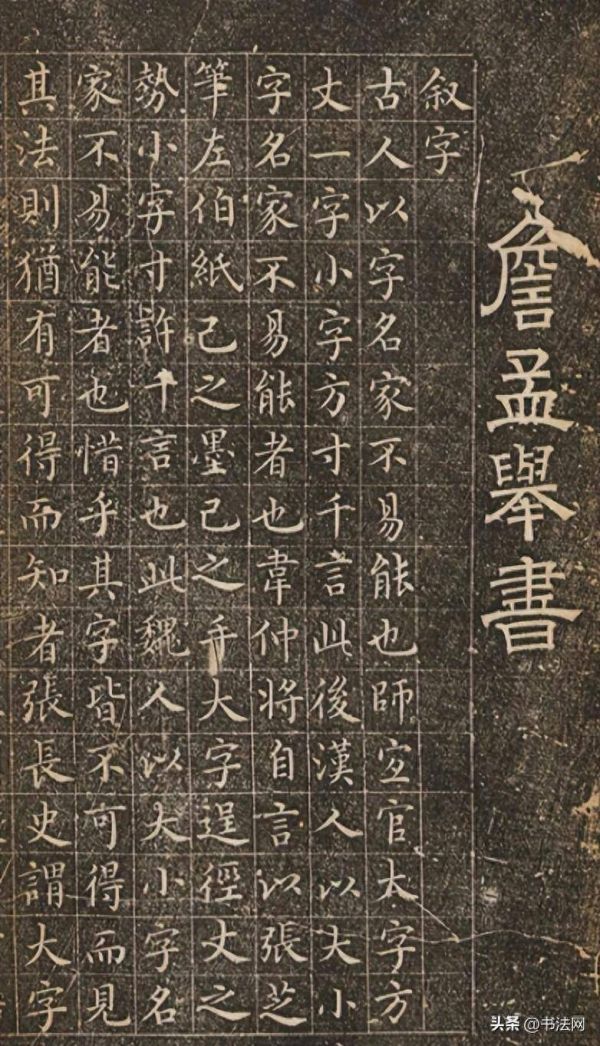 詹孟舉書
叙字
古人以字名家不易能也師宜官大字方
丈一字小字方寸千言此後漢人以大小
字名家不易能者也韋仲將自言以張芝
筆左伯紙己之墨己之手大字逞徑丈之
勢小字寸許千言也此魏人以大小字名
家不易能者也惜乎其字皆不可得而見
其法則猶有可得而知者張長史謂大字
头条 @书法网